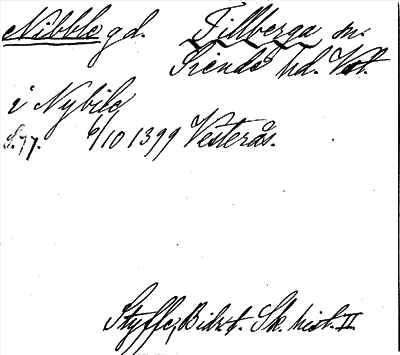 Nibble gd. Tillberga sn.
Siende hd. Vstm.
i Nybile
S. 77. 6/10 1399 Vesterås.
Styffe, Bidr. t. Sk. hist. II.